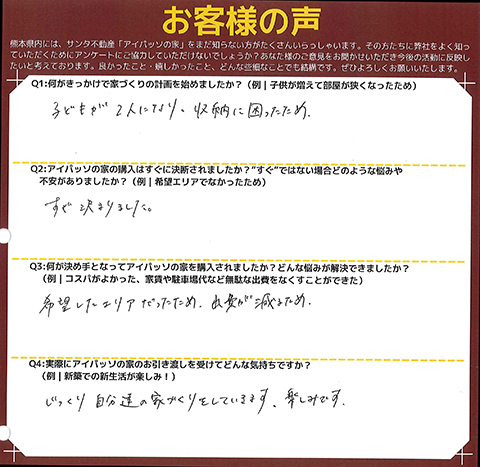 お客様の声
熊本県内には、サンタ不動産「アイパッソの家」をまだ知らない方がたくさんいらっしゃいます。その方たちに弊社をよく知っ
ていただくためにアンケートにご協力していただけないでしょうか？あなた様のご意見をお聞かせいただき今後の活動に反映し
たいと考えております。良かったこと・嬉しかったこと、どんな些細なことでも結構です。ぜひよろしくお願いいたします。
Q1:何がきっかけで家づくりの計画を始めましたか？（例｜子供が増えて部屋が狭くなったため）
子どもが2人になり、収納に困ったため。
Q2:アイパッソの家の購入はすぐに決断されましたか？"すぐ"ではない場合どのような悩みや
不安がありましたか？（例｜希望エリアでなかったため）
すぐ決まりました。
Q3:何が決め手となってアイパッソの家を購入されましたか？どんな悩みが解決できましたか？
（例｜コスパがよかった、家賃や駐車場代など無駄な出費をなくすことができた）
希望したエリアだったため、出費が減るため。
Q4:実際にアイパッソの家のお引き渡しを受けてどんな気持ちですか？
（例｜新築での新生活が楽しみ！）
じっくり自分達の家づくりをしていきます、楽しみです。